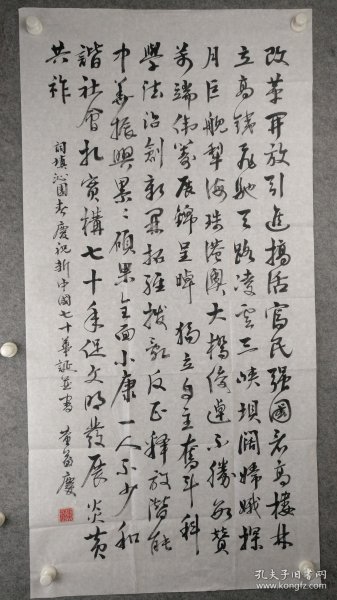 改革开放引进搞活富民强国看高楼林
立高铁飞驰天路凌云三峡坝阔嫦娥探
月巨舰犁海珠港澳大桥倚卓不胜数赞
万端伟筹展锦呈晖 独立自主奋斗科
学法治创新开拓经拨乱反正释放潜能
中华振兴累累硕果全面小康一人不少和
谐社会扎实构七十年促文明发展炎黄
共祚
词填沁园春庆祝新中国七十华诞并书 董富庆
孔夫子旧书网